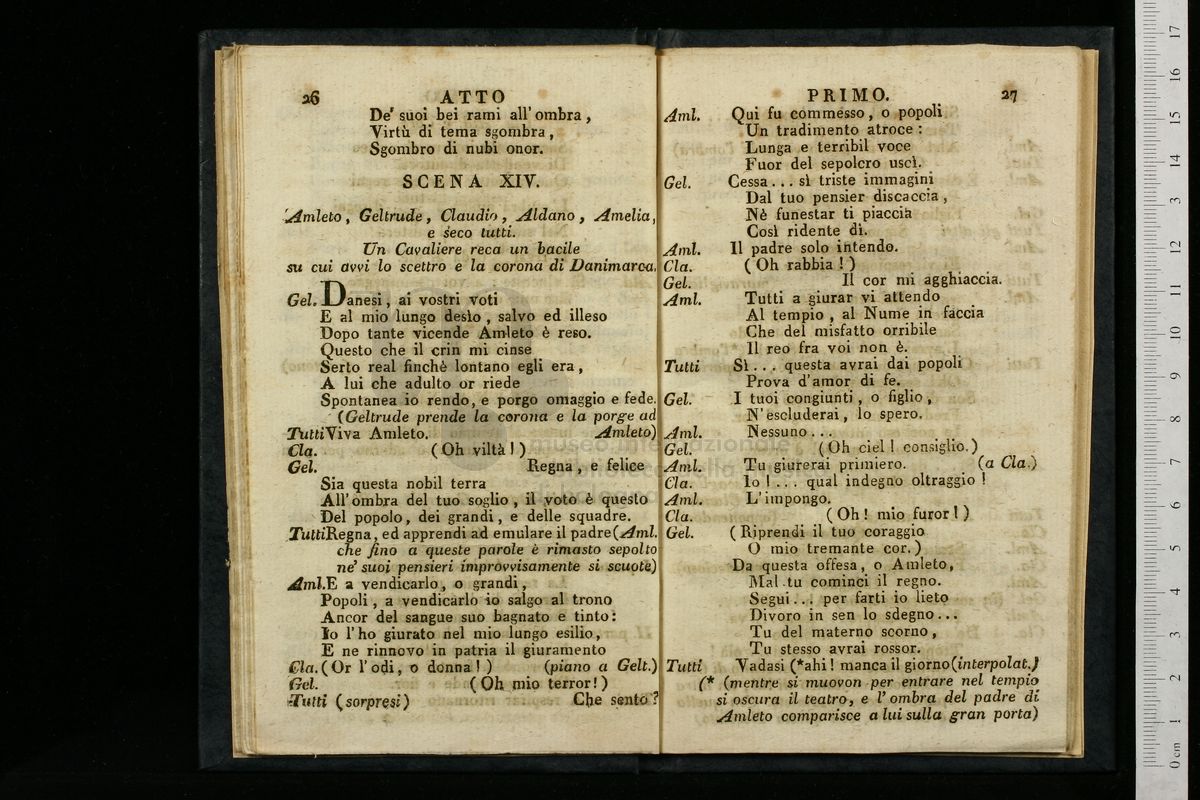 26 ATTO
De' suoi bei rami all' ombra,
Virtù di tema sgombra,
Sgombro di nubi onor.
SCENA XIV.
Amleto, Geltrude, Claudio, Aldano, Amelia,
e seco tutti.
Un Cavaliere reca un bacile
su cui avvi lo scettro e la corona di Danimarca.
Gel. Danesi, ai vostri voti
E al mio lungo desìo, salvo ed illeso
Dopo tante vicende Amleto è reso.
Questo che il crin mi cinse
Serto real finchè lontano egli era,
A lui che adulto or riede
Spontanea io rendo, e porgo omaggio e fede.
(Geltrude prende la corona e la porge ad
Tutti Viva Amleto. Amleto)
Cla. (Oh viltà!)
Gel. Regna, e felice
Sia questa nobil terra
All' ombra del tuo soglio, il voto è questo
Del popolo, dei grandi, e delle squadre.
Tutti Regna, ed apprendi ad emulare il padre (Aml.
che fino a queste parole è rimasto sepolto
ne' suoi pensieri improvvisamente si scuote)
Aml. E a vendicarlo, o grandi,
Popoli, a vendicarlo io salgo al trono
Ancor del sangue suo bagnato e tinto:
Io l' ho giurato nel mio lungo esilio,
E ne rinnovo in patria il giuramento
Cla. (Or l' odi, o donna!) (piano a Gelt.)
Gel. (Oh mio terror!)
Tutti (sorpresi) Che sento?
PRIMO. 27
Aml. Qui fu commesso, o popoli
Un tradimento atroce:
Lunga e terribil voce
Fuor del sepolcro uscì.
Gel. Cessa... sì triste immagini
Dal tuo pensier discaccia,
Nè funestar ti piaccia
Così ridente dì.
Aml. Il padre solo intendo.
Cla. (Oh rabbia!)
Gel. Il cor mi agghiaccia.
Aml. Tutti a giurar vi attendo
Al tempio, al Nume in faccia
Che del misfatto orribile
Il reo fra voi non è.
Tutti Sì... questa avrai dai popoli
Prova d'amor di fe.
Gel. I tuoi congiunti, o figlio,
N' escluderai, lo spero.
Aml. Nessuno...
Gel. (Oh ciel! consiglio.)
Aml. Tu giurerai primiero. (a Cla.)
Cla. Io!... qual indegno oltraggio!
Aml. L' impongo.
Cla. (Oh! mio furor!)
Gel. (Riprendi il tuo coraggio
O mio tremante cor.)
Da questa offesa, o Amleto,
Mal tu cominci il regno.
Segui... per farti io lieto
Divoro in sen lo sdegno...
Tu del materno scorno,
Tu stesso avrai rossor.
Tutti Vadasi (*ahi! manca il giorno (interpolat.)
(* (mentre si muovon per entrare nel tempio
si oscura il teatro, e l' ombra del padre di
Amleto comparisce a lui sulla gran porta)
museo internazionale
0 cm 1 2 3 4 5 6 7 8 9 10 11 12 13 14 15 16 17